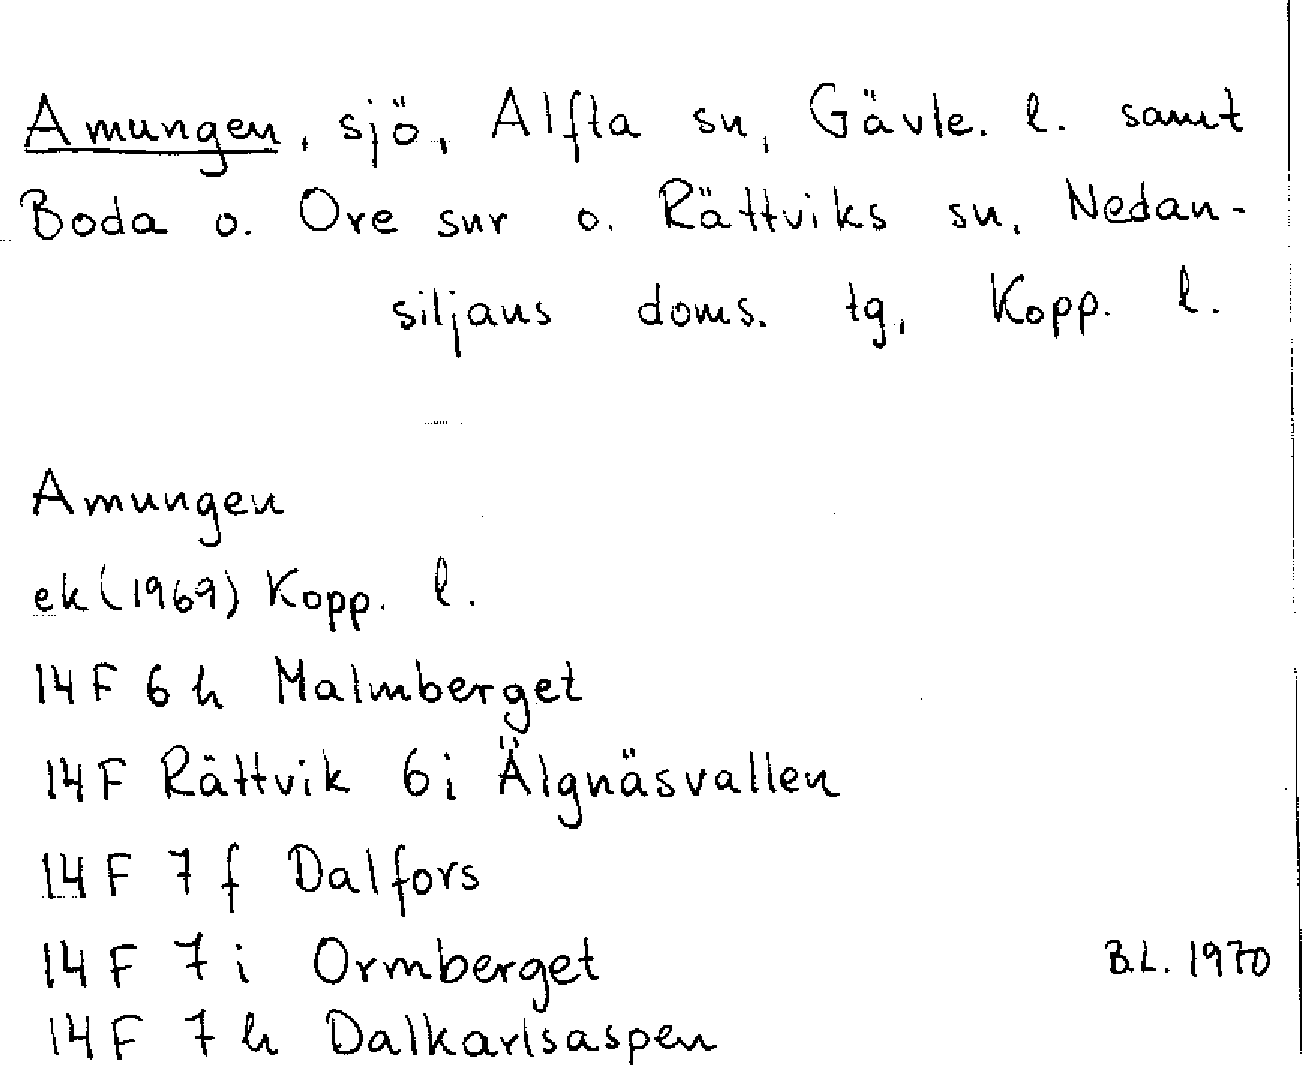 Amungen, sjö, Alfta sn, Gävle. l. samt
Boda o. Ore snr o. Rättviks sn, Nedan-
siljans doms. tg, Kopp. l.
Amungen
ek (1969) Kopp. l.
14 F 6 h Malmberget
14 F Rättvik 6 i Älgnäsvallen
14 F 7 f Dalfors
14 F 7 i Ormberget
B.L. 1970
14 F 7 h Dalkarlsaspen